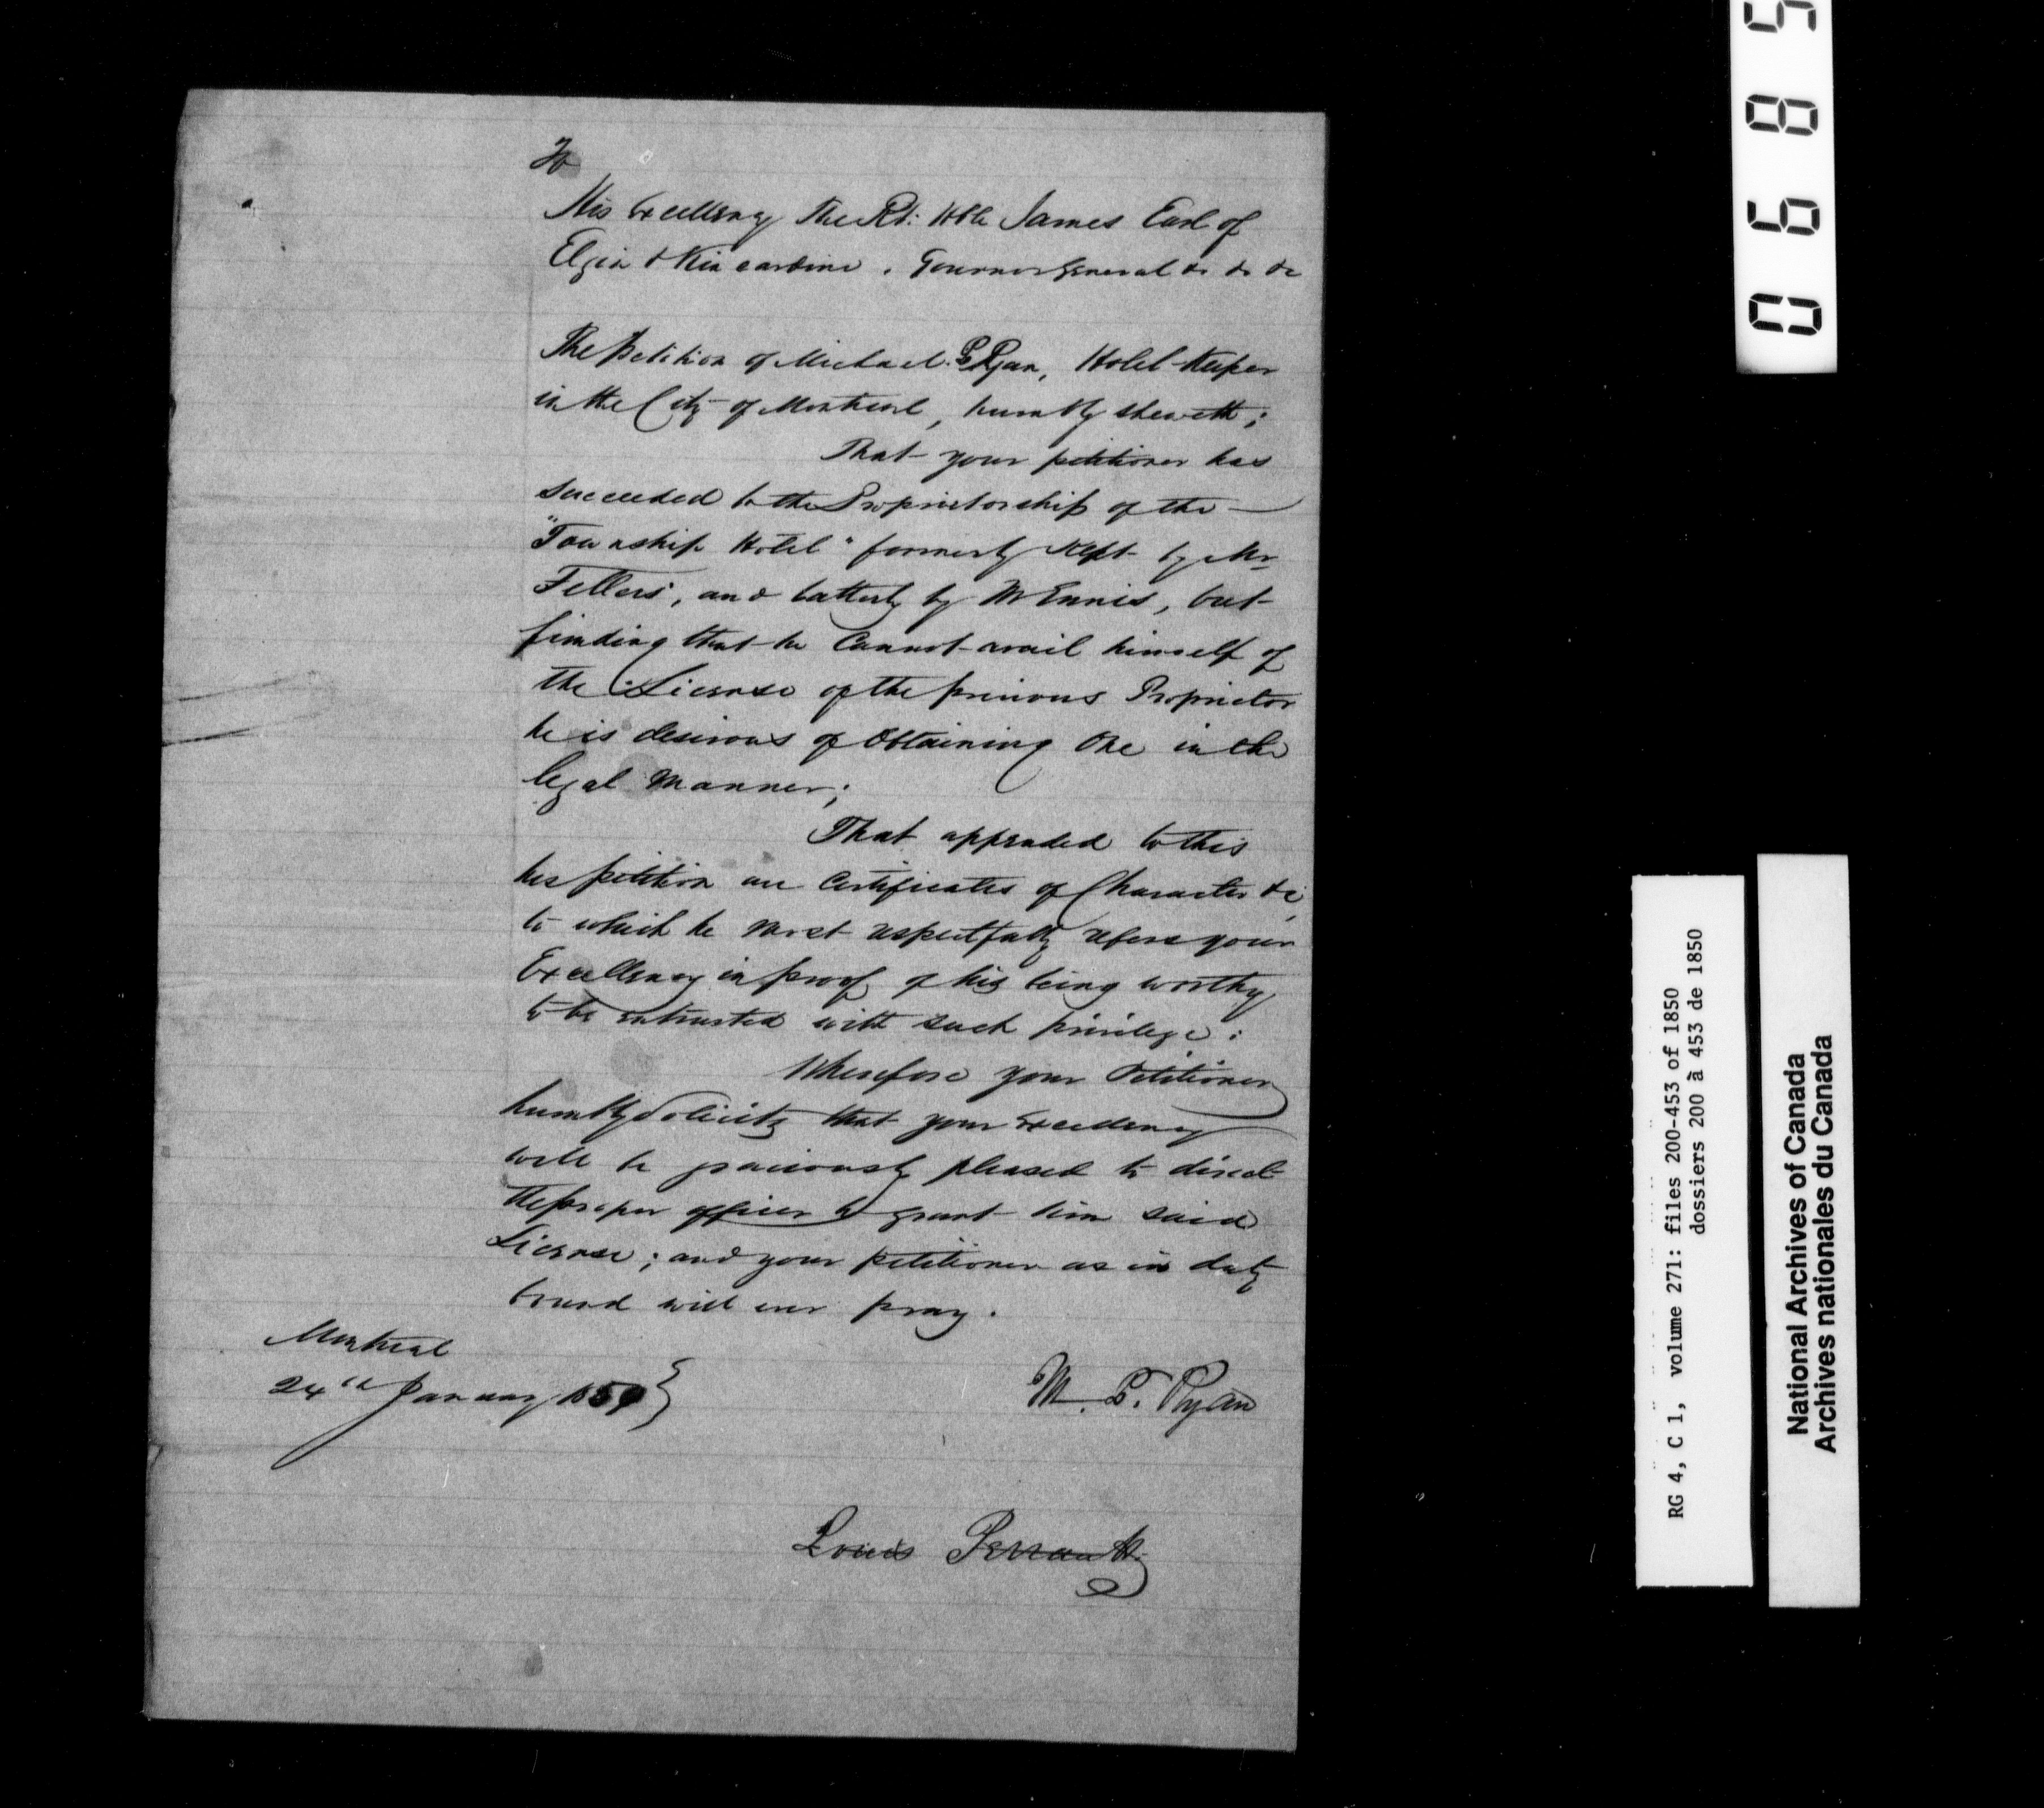 To
His Excellency The Rt: Hble James Earl of
Elgin & Kincardine, Governor General &c &c &c
The Petition of Michael P Ryan, Hotel-Keeper
in the City of Montreal, humbly sheweth;
That your petitioner has
succeeded to the Proprietorship of the
"Township Hotel" formerly kept by Mr
Fellers, and latterly by Mr Ennis, but
finding that he Cannot avail himself of
the License of the previous Proprietor
he is desirous of Obtaining One in the
legal Manner;
That appended to this
his petition are Certificates of Character &c,
to which he most respectfully refers your
Excellency in proof of his being worthy
to be entrusted with such privilege:
Wherefore your Petitioner
humbly Solicits that your Excellency
will be graciously pleased to direct
the proper officer to grant him said
License; and your petitioner as in duty
bound will ever pray.
Montreal
24th January 1850
M. P. Ryan
Louis Perrault
0685
RG 4, C 1, volume 271: files 200-453 of 1850
dossiers 200 à 453 de 1850
National Archives of Canada
Archives nationales du Canada